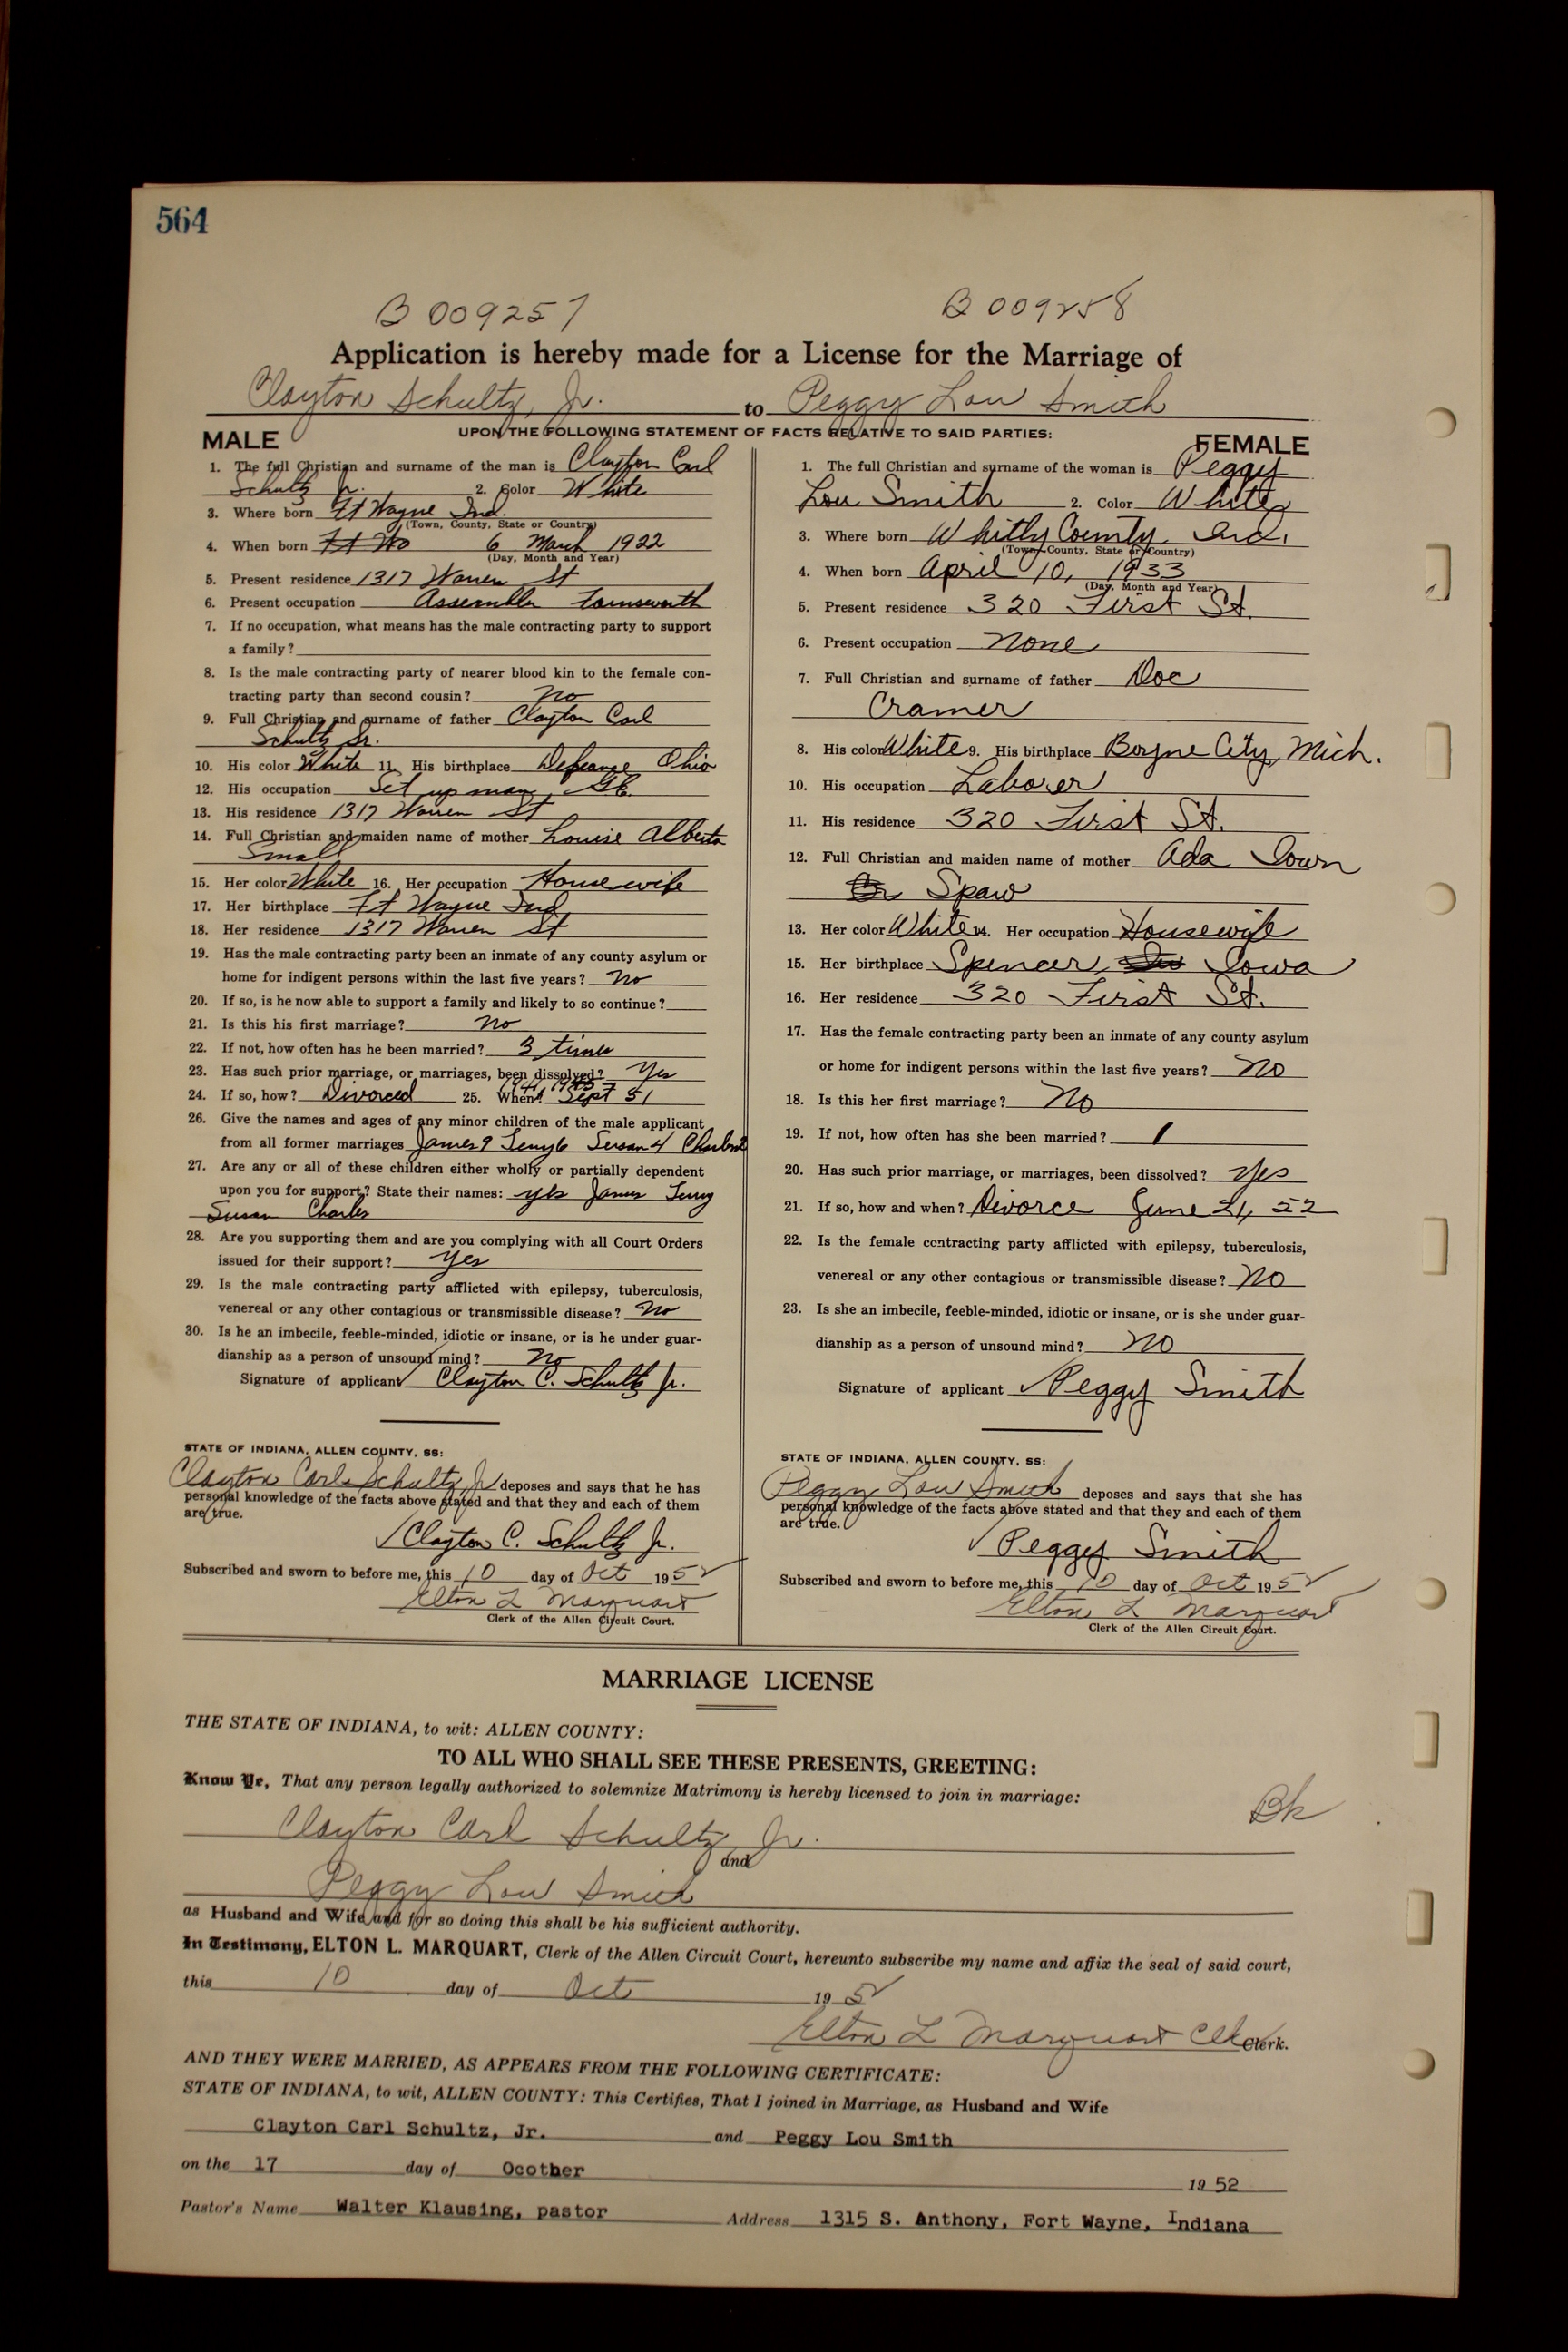 564
B 009257 B 009258
Application is hereby made for a License for the Marriage of
Clayton Schultz, Jr. to Peggy Lou Smith
UPON THE FOLLOWING STATEMENT OF FACTS RELATIVE TO SAID PARTIES:
MALE
1. The full Christian and surname of the man is Clayton Carl
Schultz Jr. 2. Color White
3. Where born Ft Wayne Ind.
(Town, County, State or Country)
4. When born Ft Wo 6 March 1922
(Day, Month and Year)
5. Present residence 1317 Warren St
6. Present occupation Assembler Farnsworth
7. If no occupation, what means has the male contracting party to support
a family?
8. Is the male contracting party of nearer blood kin to the female con-
tracting party than second cousin? No
9. Full Christian and surname of father Clayton Carl
Schultz Sr.
10. His color White 11. His birthplace Defiance Ohio
12. His occupation Set up man, G.E.
13. His residence 1317 Warren St
14. Full Christian and maiden name of mother Louise Alberta
Small
15. Her color White 16. Her occupation Housewife
17. Her birthplace Ft Wayne Ind
18. Her residence 1317 Warren St
19. Has the male contracting party been an inmate of any county asylum or
home for indigent persons within the last five years? No
20. If so, is he now able to support a family and likely to so continue?
21. Is this his first marriage? No
22. If not, how often has he been married? 3 times
23. Has such prior marriage, or marriages, been dissolved? Yes
24. If so, how? Divorced 25. When? 1941 1945 Sept 51
26. Give the names and ages of any minor children of the male applicant
from all former marriages James 9 Terry 6 Susan 4
27. Are any or all of these children either wholly or partially dependent
upon you for support? State their names: yes James Terry
Susan Charles
28. Are you supporting them and are you complying with all Court Orders
issued for their support? Yes
29. Is the male contracting party afflicted with epilepsy, tuberculosis,
venereal or any other contagious or transmissible disease? No
30. Is he an imbecile, feeble-minded, idiotic or insane, or is he under guar-
dianship as a person of unsound mind? No
Signature of applicant Clayton C. Schultz Jr.
STATE OF INDIANA, ALLEN COUNTY, SS:
Clayton Carl Schultz Jr deposes and says that he has
personal knowledge of the facts above stated and that they and each of them
are true.
Clayton C. Schultz Jr.
Subscribed and sworn to before me, this 10 day of Oct 1952
Elton L Marquart
Clerk of the Allen Circuit Court.
FEMALE
1. The full Christian and surname of the woman is Peggy
Lou Smith 2. Color White
3. Where born Whitly County, Ind.
(Town, County, State or Country)
4. When born April 10, 1933
(Day, Month and Year)
5. Present residence 320 First St.
6. Present occupation None
7. Full Christian and surname of father Doc
Cramer
8. His color White 9. His birthplace Boyne City, Mich.
10. His occupation Laborer
11. His residence 320 First St.
12. Full Christian and maiden name of mother Ada Iown
Spaw
13. Her color White 14. Her occupation Housewife
15. Her birthplace Spencer, Iowa
16. Her residence 320 First St.
17. Has the female contracting party been an inmate of any county asylum
or home for indigent persons within the last five years? No
18. Is this her first marriage? No
19. If not, how often has she been married? 1
20. Has such prior marriage, or marriages, been dissolved? Yes
21. If so, how and when? Divorce June 21, 52
22. Is the female contracting party afflicted with epilepsy, tuberculosis,
venereal or any other contagious or transmissible disease? No
23. Is she an imbecile, feeble-minded, idiotic or insane, or is she under guar-
dianship as a person of unsound mind? No
Signature of applicant Peggy Smith
STATE OF INDIANA, ALLEN COUNTY, SS:
Peggy Lou Smith deposes and says that she has
personal knowledge of the facts above stated and that they and each of them
are true.
Peggy Smith
Subscribed and sworn to before me, this 10 day of Oct 1952
Elton L Marquart
Clerk of the Allen Circuit Court.
MARRIAGE LICENSE
THE STATE OF INDIANA, to wit: ALLEN COUNTY:
TO ALL WHO SHALL SEE THESE PRESENTS, GREETING:
Know Ye, That any person legally authorized to solemnize Matrimony is hereby licensed to join in marriage:
Bk
Clayton Carl Schultz, Jr.
and
Peggy Lou Smith
as Husband and Wife and for so doing this shall be his sufficient authority.
In Testimony, ELTON L. MARQUART, Clerk of the Allen Circuit Court, hereunto subscribe my name and affix the seal of said court,
this 10 day of Oct 1952
Elton L Marquart Clk Clerk.
AND THEY WERE MARRIED, AS APPEARS FROM THE FOLLOWING CERTIFICATE:
STATE OF INDIANA, to wit, ALLEN COUNTY: This Certifies, That I joined in Marriage, as Husband and Wife
Clayton Carl Schultz, Jr. and Peggy Lou Smith
on the 17 day of Ocother 1952
Pastor's Name Walter Klausing, pastor Address 1315 S. Anthony, Fort Wayne, Indiana